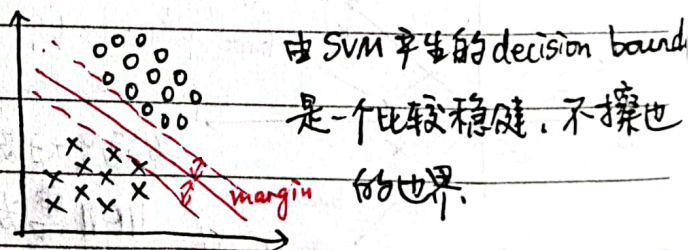 由SVM产生的decision bound
是一个比较稳健、不擦也
的也界.
margin